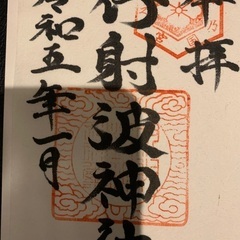 奉拝
伊射波神社
令和五年一月